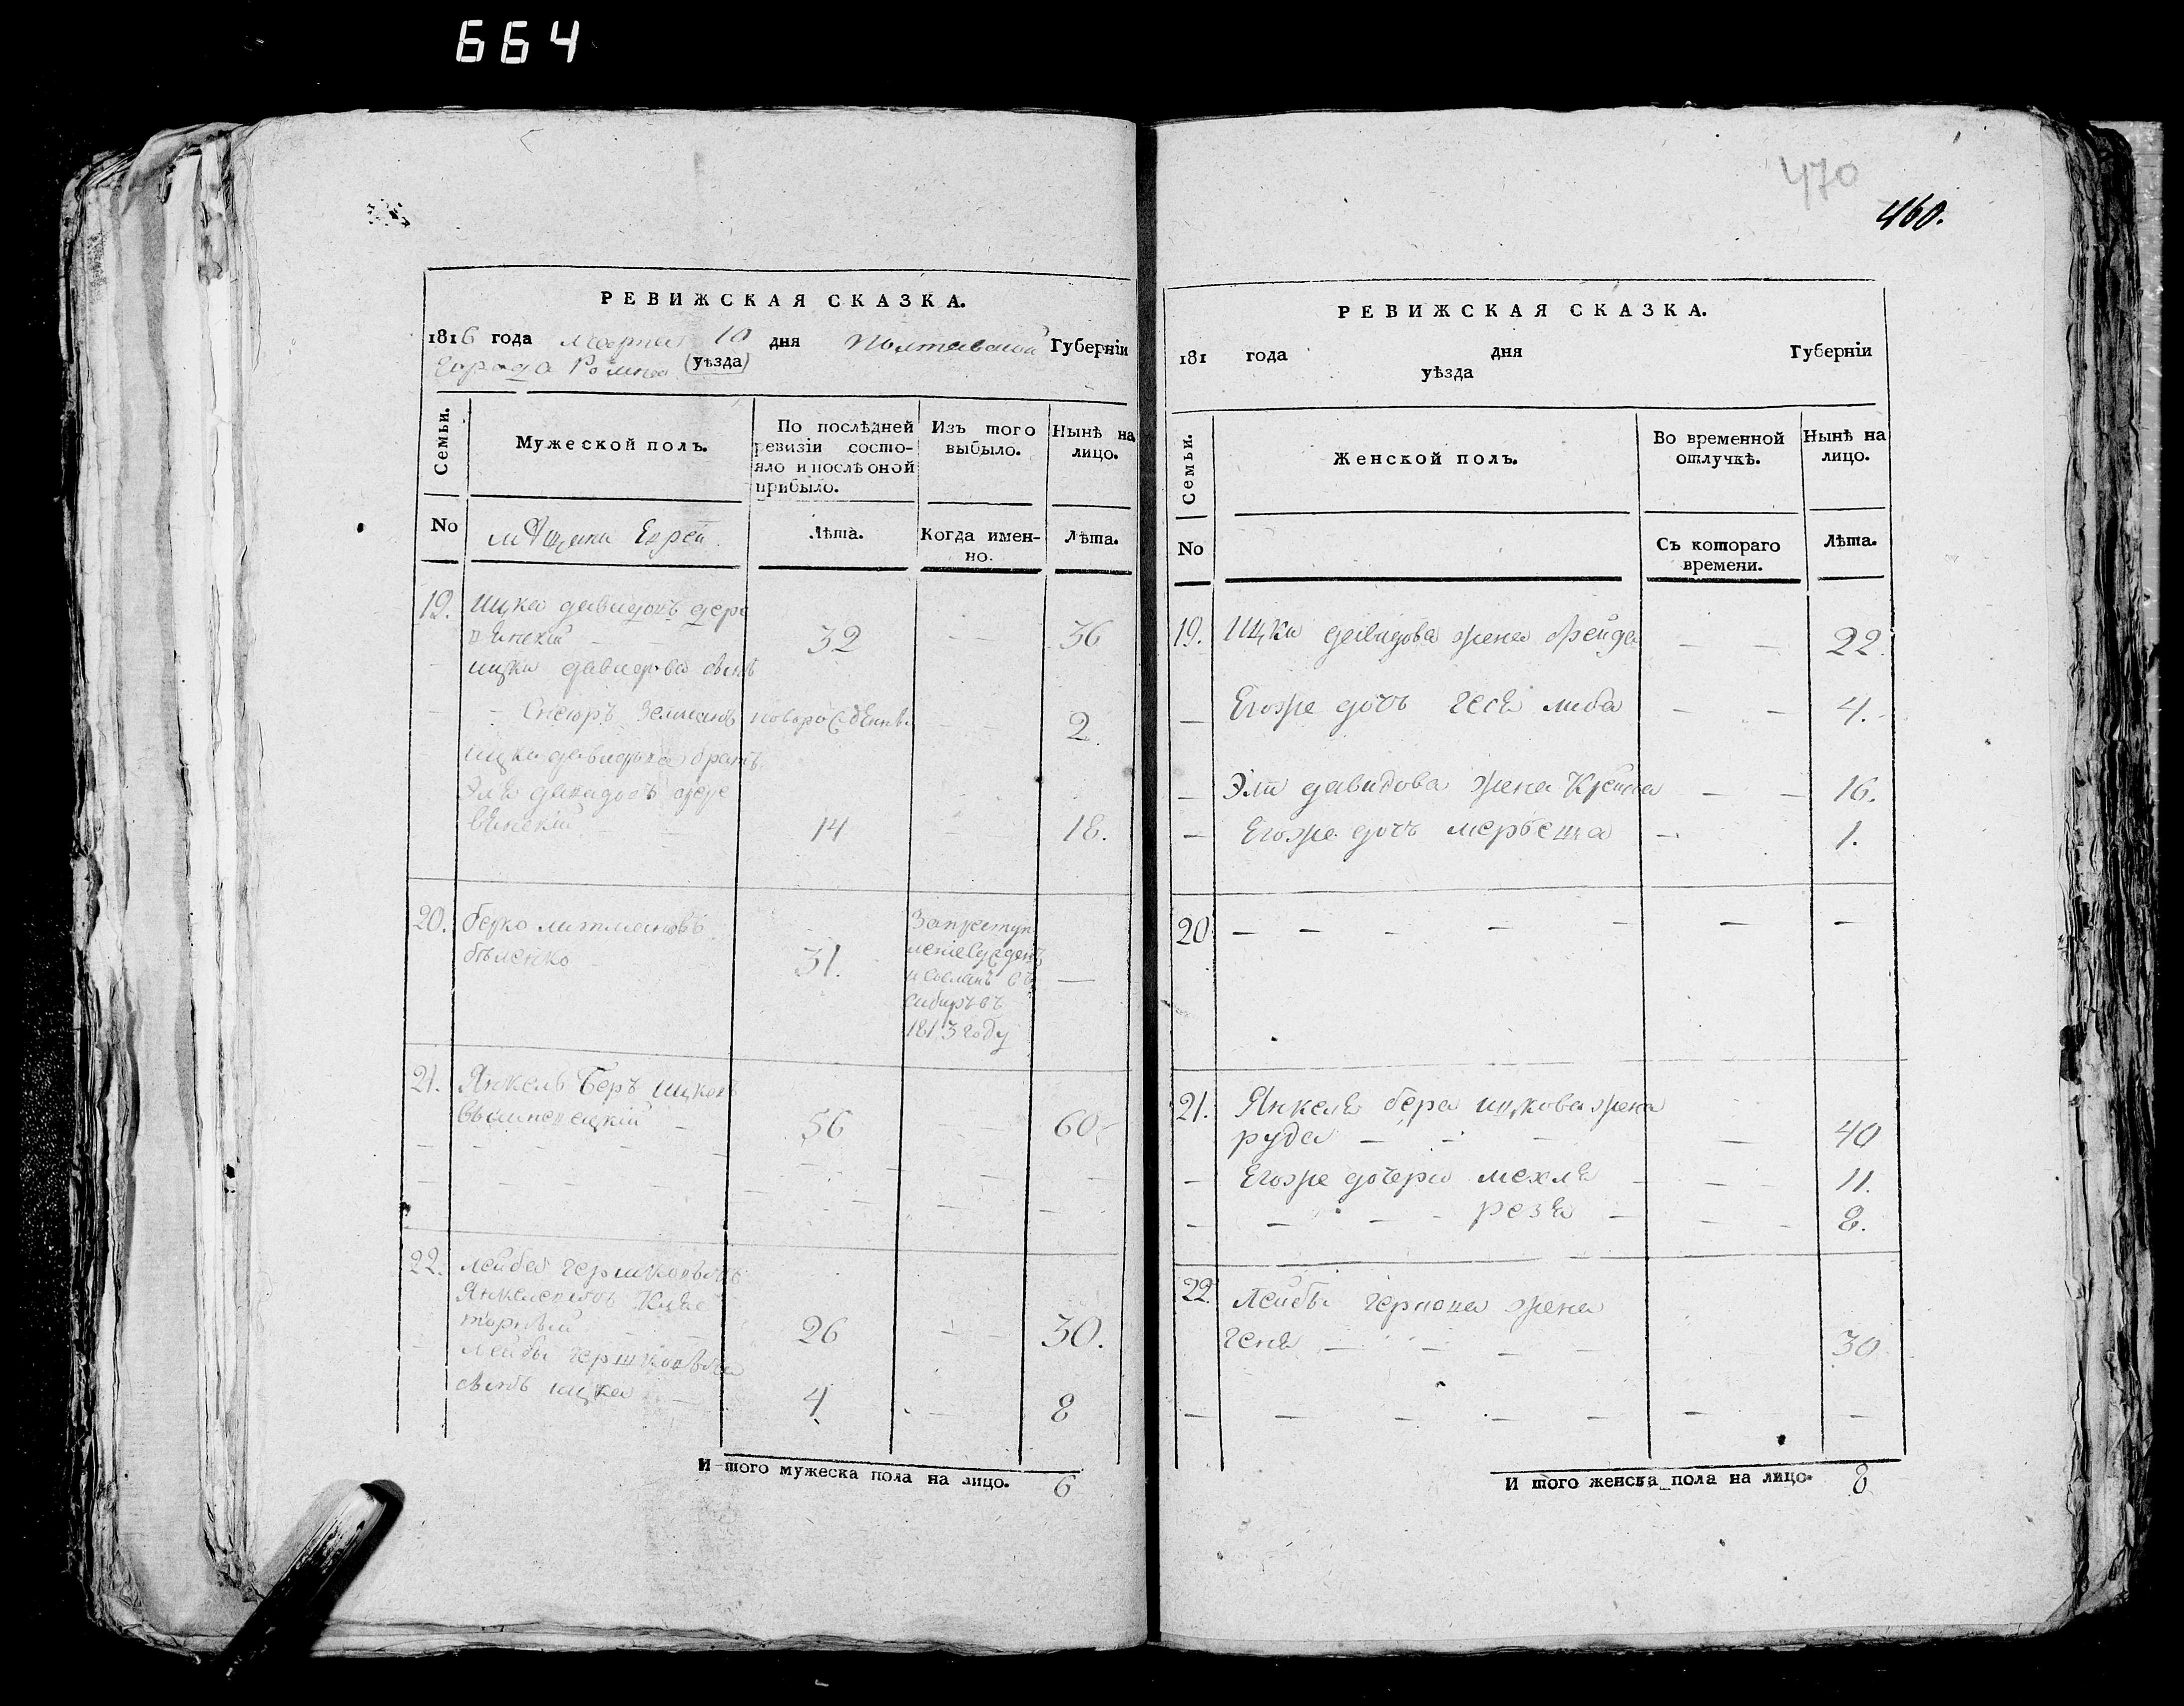 664
470
460.
РЕВИЖСКАЯ СКАЗКА.
1816 года марта 10 дня Полтавской Губерніи
Города Ромна (уѣзда)
Семьи.
Мужеской полъ.
По послѣдней ревизіи состояло и послѣ оной прибыло.
Изъ того выбыло.
Нынѣ на лицо.
No
мѣщани Евреи.
Лѣта.
Когда именно.
Лѣта.
19. ицка давидовъ дере
вянскій 32 36
ицка давидова сынъ
Зелманъ новорожденны 2
ицка давидова братъ
Эля давидовъ дере
вянскій 14 18.
20. берко литмановъ
бѣленко 31.
За преступ
леніе сужденъ
и сосланъ въ
сибирь въ
1813 году
21. Янкель беръ ицков
56 60
22. лейба гершковичъ
26 30.
лейбы гершковича
сынъ ицка 4 8
И того мужеска пола на лицо. 6
РЕВИЖСКАЯ СКАЗКА.
181 года дня Губерніи
уѣзда
Семьи.
Женской полъ.
Во временной отлучкѣ.
Нынѣ на лицо.
No
Съ котораго времени.
Лѣта.
19. Ицки давидова жена фрейда 22.
Егоже дочь геся либа 4.
Эли давидова жена Крейна 16.
Егоже дочь 1.
20
21. Янкеля бера ицкова жена
руда 40
Егоже дочери мехля 11.
резя 8.
22. Лейбы жена
геня 30
И того женска пола на лицо. 8